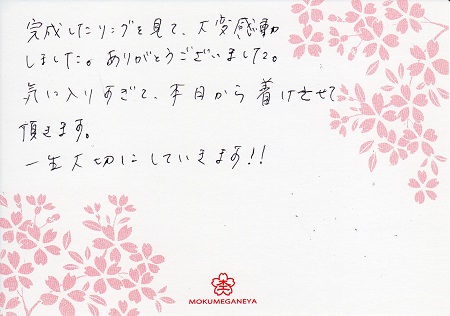 完成したリングを見て、大変感動
しました。ありがとうございました。
気に入りすぎて、本日から着けさせて
頂きます。
一生大切にしていきます!!
MOKUMEGANEYA